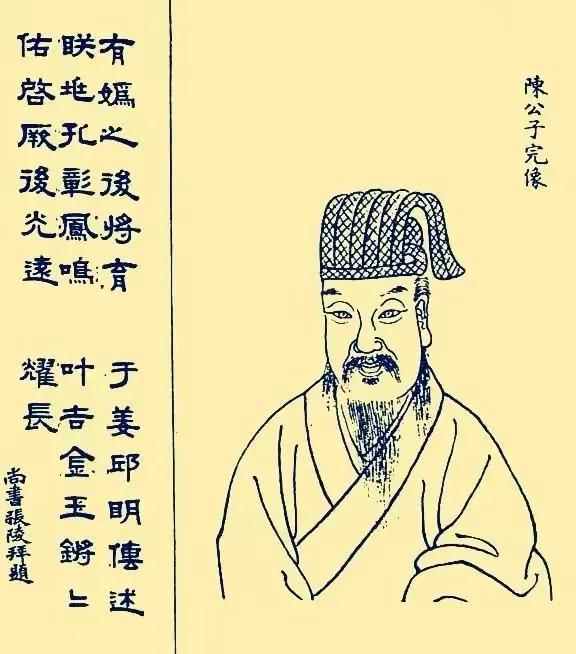 陳公子完像
有媯之後將育 于姜邱明傳述
眹兆孔彰鳳鳴 叶吉金玉鏘〻
佑啓厥後光遠 耀長
尚書張陵拜題